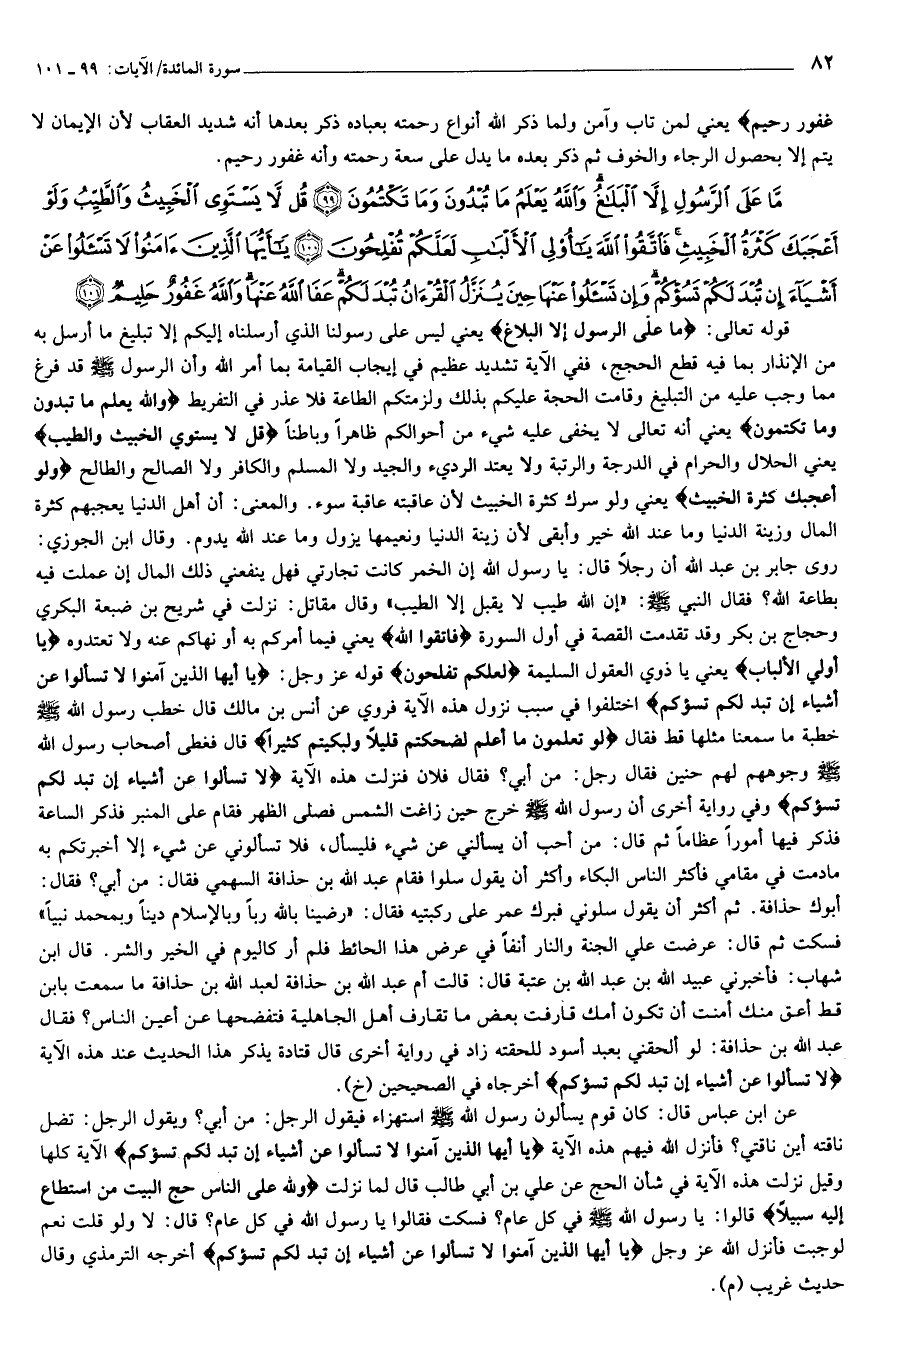 ٨٢ سورة المائدة/ الآيات: ٩٩ ـ ١٠١
غفور رحيم﴾ يعني لمن تاب وآمن ولما ذكر الله أنواع رحمته بعباده ذكر بعدها أنه شديد العقاب لأن الإيمان لا
يتم إلا بحصول الرجاء والخوف ثم ذكر بعده ما يدل على سعة رحمته وأنه غفور رحيم.
مَّا عَلَى ٱلرَّسُولِ إِلَّا ٱلْبَلَٰغُ ۗ وَٱللَّهُ يَعْلَمُ مَا تُبْدُونَ وَمَا تَكْتُمُونَ ۝٩٩ قُل لَّا يَسْتَوِى ٱلْخَبِيثُ وَٱلطَّيِّبُ وَلَوْ
أَعْجَبَكَ كَثْرَةُ ٱلْخَبِيثِ ۚ فَٱتَّقُوا۟ ٱللَّهَ يَٰٓأُو۟لِى ٱلْأَلْبَٰبِ لَعَلَّكُمْ تُفْلِحُونَ ۝١٠٠ يَٰٓأَيُّهَا ٱلَّذِينَ ءَامَنُوا۟ لَا تَسْـَٔلُوا۟ عَنْ
أَشْيَآءَ إِن تُبْدَ لَكُمْ تَسُؤْكُمْ وَإِن تَسْـَٔلُوا۟ عَنْهَا حِينَ يُنَزَّلُ ٱلْقُرْءَانُ تُبْدَ لَكُمْ عَفَا ٱللَّهُ عَنْهَا ۗ وَٱللَّهُ غَفُورٌ حَلِيمٌ ۝١٠١
قوله تعالى: ﴿ما على الرسول إلا البلاغ﴾ يعني ليس على رسولنا الذي أرسلناه إليكم إلا تبليغ ما أرسل به
من الإنذار بما فيه قطع الحجج، ففي الآية تشديد عظيم في إيجاب القيامة بما أمر الله وأن الرسول ﷺ قد فرغ
مما وجب عليه من التبليغ وقامت الحجة عليكم بذلك ولزمتكم الطاعة فلا عذر في التفريط ﴿والله يعلم ما تبدون
وما تكتمون﴾ يعني أنه تعالى لا يخفى عليه شيء من أحوالكم ظاهراً وباطناً ﴿قل لا يستوي الخبيث والطيب﴾
يعني الحلال والحرام في الدرجة والرتبة ولا يعتد الرديء والجيد ولا المسلم والكافر ولا الصالح والطالح ﴿ولو
أعجبك كثرة الخبيث﴾ يعني ولو سرك كثرة الخبيث لأن عاقبته عاقبة سوء. والمعنى: أن أهل الدنيا يعجبهم كثرة
المال وزينة الدنيا وما عند الله خير وأبقى لأن زينة الدنيا ونعيمها يزول وما عند الله يدوم. وقال ابن الجوزي:
روى جابر بن عبد الله أن رجلاً قال: يا رسول الله إن الخمر كانت تجارتي فهل ينفعني ذلك المال إن عملت فيه
بطاعة الله؟ فقال النبي ﷺ: «إن الله طيب لا يقبل إلا الطيب» وقال مقاتل: نزلت في شريح بن ضبعة البكري
وحجاج بن بكر وقد تقدمت القصة في أول السورة ﴿فاتقوا الله﴾ يعني فيما أمركم به أو نهاكم عنه ولا تعتدوه ﴿يا
أولي الألباب﴾ يعني يا ذوي العقول السليمة ﴿لعلكم تفلحون﴾ قوله عز وجل: ﴿يا أيها الذين آمنوا لا تسألوا عن
أشياء إن تبد لكم تسؤكم﴾ اختلفوا في سبب نزول هذه الآية فروي عن أنس بن مالك قال خطب رسول الله ﷺ
خطبة ما سمعنا مثلها قط فقال ﴿لو تعلمون ما أعلم لضحكتم قليلاً ولبكيتم كثيراً﴾ قال فغطى أصحاب رسول الله
ﷺ وجوههم لهم حنين فقال رجل: من أبي؟ فقال فلان فنزلت هذه الآية ﴿لا تسألوا عن أشياء إن تبد لكم
تسؤكم﴾ وفي رواية أخرى أن رسول الله ﷺ خرج حين زاغت الشمس فصلى الظهر فقام على المنبر فذكر الساعة
فذكر فيها أموراً عظاماً ثم قال: من أحب أن يسألني عن شيء فليسأل، فلا تسألوني عن شيء إلا أخبرتكم به
مادمت في مقامي فأكثر الناس البكاء وأكثر أن يقول سلوا فقام عبد الله بن حذافة السهمي فقال: من أبي؟ فقال:
أبوك حذافة. ثم أكثر أن يقول سلوني فبرك عمر على ركبتيه فقال: «رضينا بالله رباً وبالإسلام ديناً وبمحمد نبياً»
فسكت ثم قال: عرضت علي الجنة والنار أنفاً في عرض هذا الحائط فلم أر كاليوم في الخير والشر. قال ابن
شهاب: فأخبرني عبيد الله بن عبد الله بن عتبة قال: قالت أم عبد الله بن حذافة لعبد الله بن حذافة ما سمعت بابن
قط أعق منك أمنت أن تكون أمك قارفت بعض ما تقارف أهل الجاهلية فتفضحها عن أعين الناس؟ فقال
عبد الله بن حذافة: لو ألحقني بعبد أسود للحقته زاد في رواية أخرى قال قتادة يذكر هذا الحديث عند هذه الآية
﴿لا تسألوا عن أشياء إن تبد لكم تسؤكم﴾ أخرجاه في الصحيحين (خ).
عن ابن عباس قال: كان قوم يسألون رسول الله ﷺ استهزاء فيقول الرجل: من أبي؟ ويقول الرجل: تضل
ناقته أين ناقتي؟ فأنزل الله فيهم هذه الآية ﴿يا أيها الذين آمنوا لا تسألوا عن أشياء إن تبد لكم تسؤكم﴾ الآية كلها
وقيل نزلت هذه الآية في شأن الحج عن علي بن أبي طالب قال لما نزلت ﴿ولله على الناس حج البيت من استطاع
إليه سبيلاً﴾ قالوا: يا رسول الله ﷺ في كل عام؟ فسكت فقالوا يا رسول الله في كل عام؟ قال: لا ولو قلت نعم
لوجبت فأنزل الله عز وجل ﴿يا أيها الذين آمنوا لا تسألوا عن أشياء إن تبد لكم تسؤكم﴾ أخرجه الترمذي وقال
حديث غريب (م).